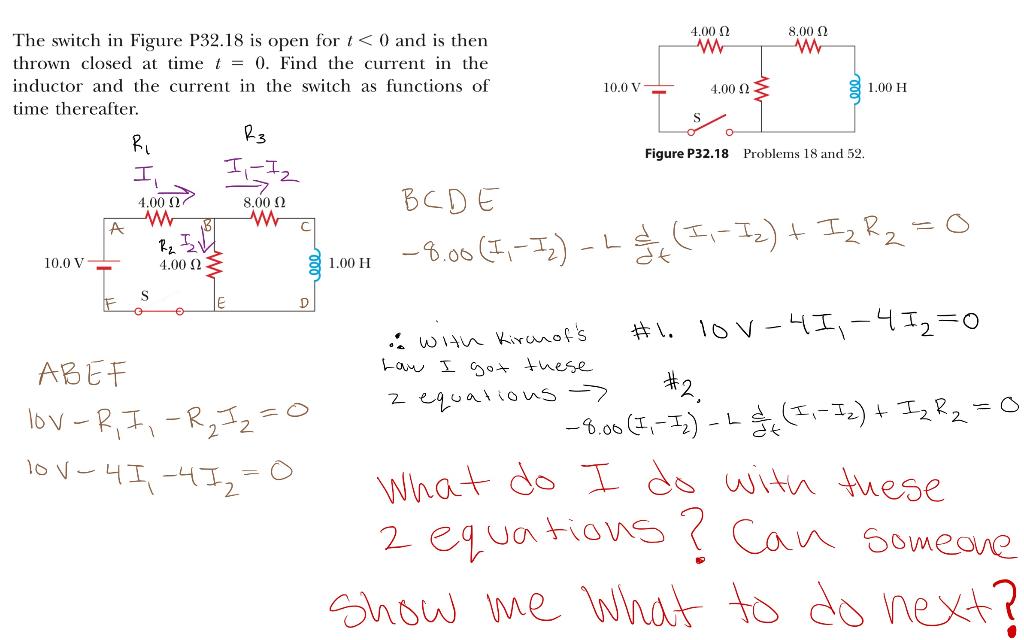 The switch in Figure P32.18 is open for t < 0 and is then
thrown closed at time t = 0. Find the current in the
inductor and the current in the switch as functions of
time thereafter.
4.00 Ω
8.00 Ω
10.0 V
4.00 Ω
1.00 H
S
Figure P32.18 Problems 18 and 52.
R₁
R₃
I₁
I₁-I₂
4.00 Ω
8.00 Ω
A
B
C
R₂ I₂
10.0 V
4.00 Ω
1.00 H
S
F
E
D
BCDE
-8.00 (I₁-I₂) - L d/dt (I₁-I₂) + I₂R₂ = 0
ABEF
10V - R₁I₁ - R₂I₂ = 0
10V - 4I₁ - 4I₂ = 0
∴ with Kirchof's
Law I got these
2 equations →
#1. 10V - 4I₁ - 4I₂ = 0
#2.
-8.00 (I₁-I₂) - L d/dt (I₁-I₂) + I₂R₂ = 0
What do I do with these
2 equations? Can someone
show me what to do next?